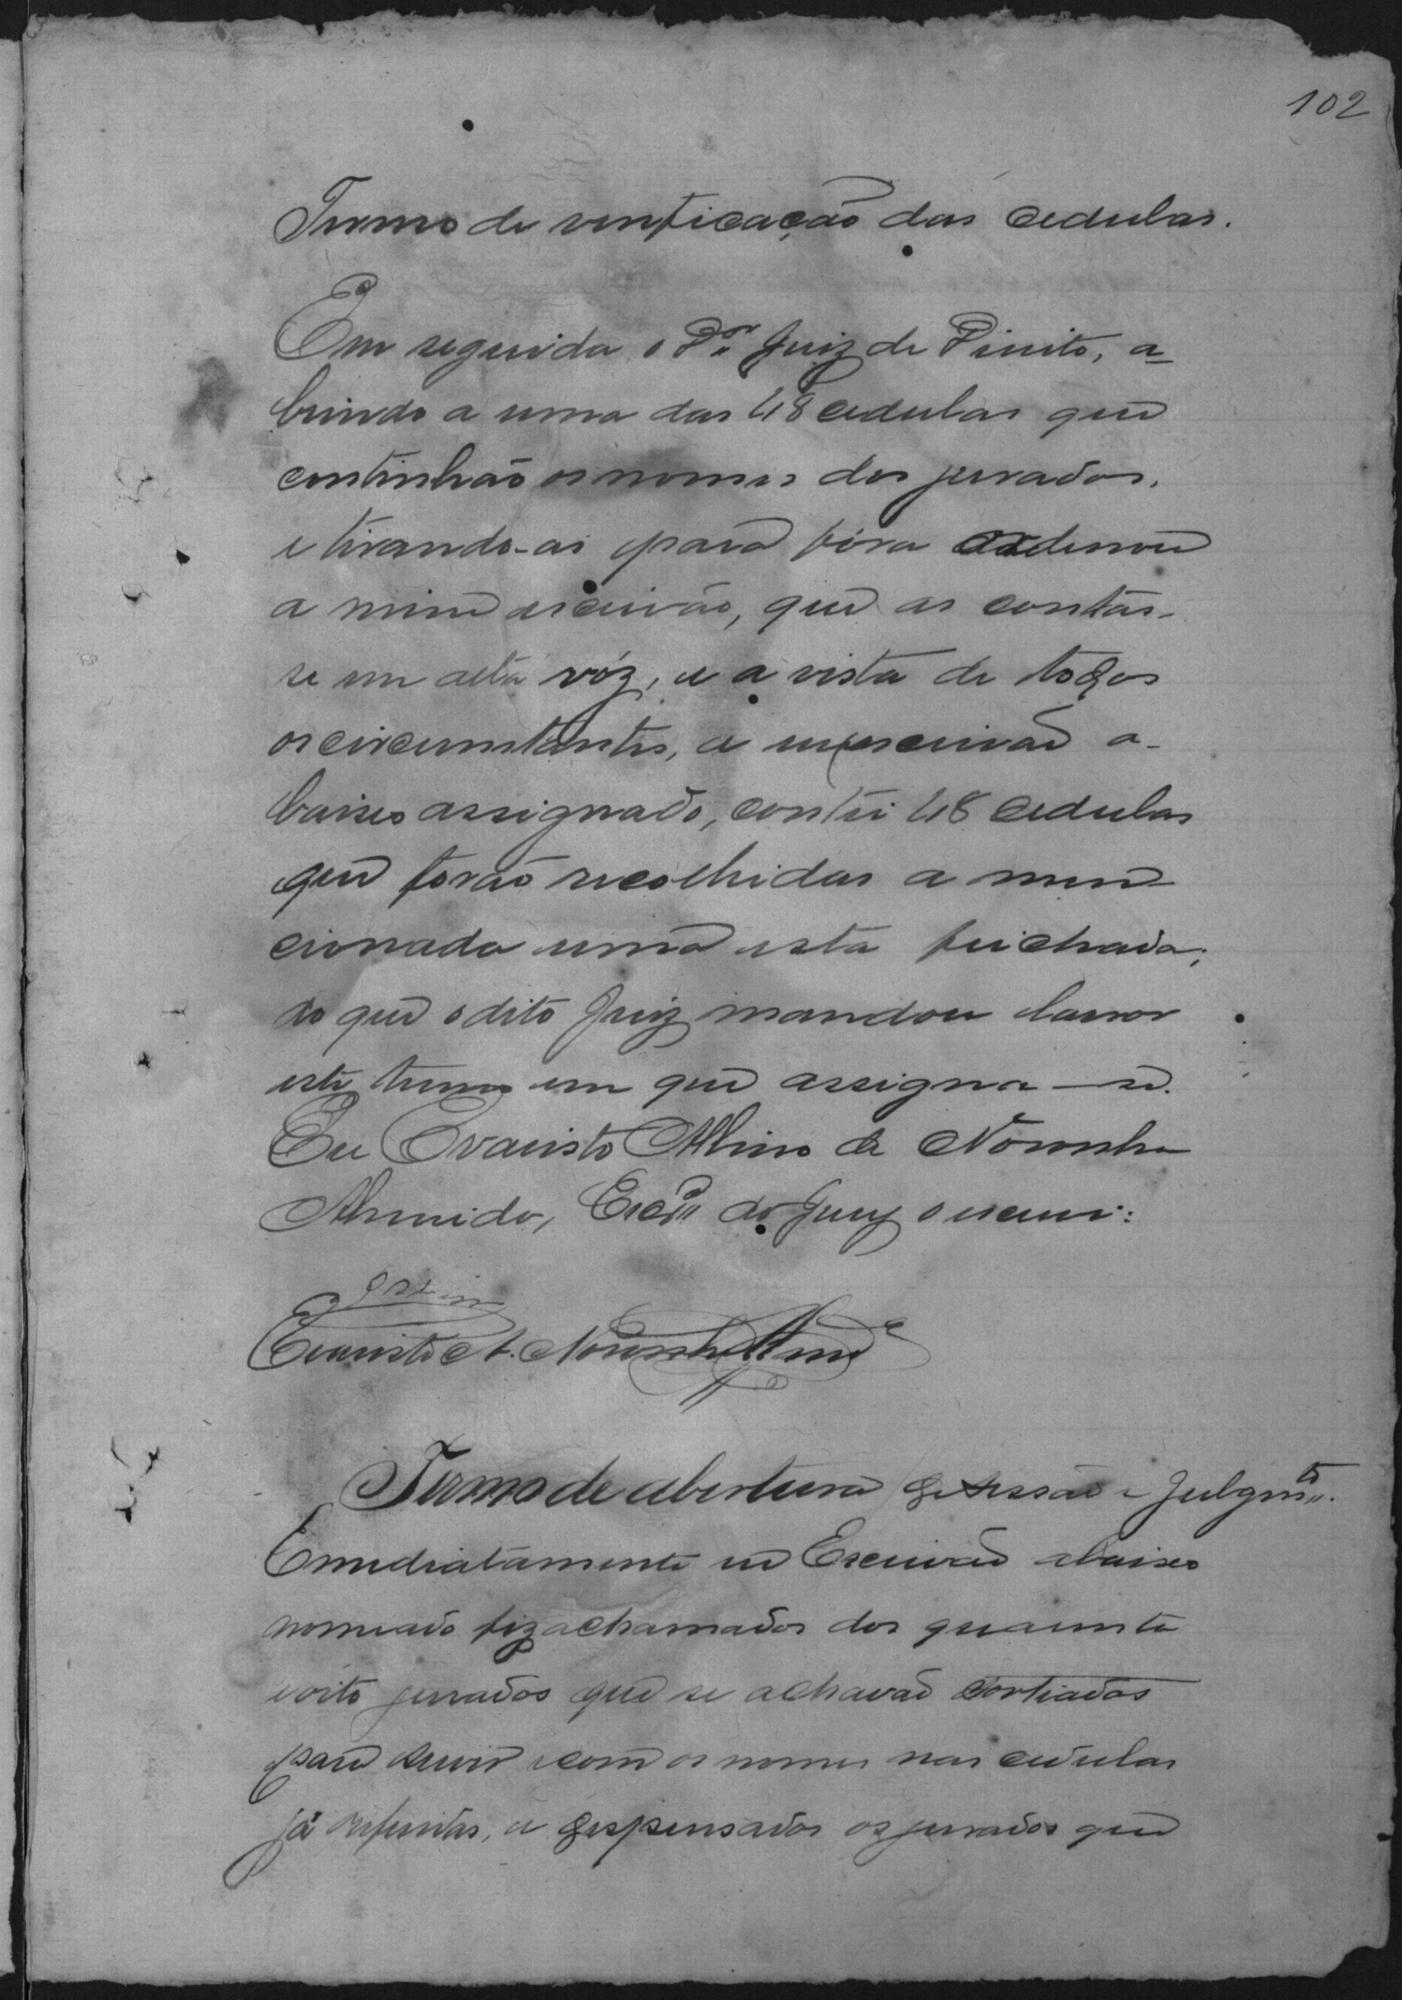 102
Termo de verificação das cedulas.
Em seguida o Dor Juiz de Direito, a
brindo a urna das 48 cedulas que
continhão os nomes dos jurados,
e tirando-as para fóra ordenou
a mim escrivão, que as contas-
se em alta vóz, e a vista de todos
os circumstantes, e eu escrivão a-
baixo assignado, contei 48 cedulas
que forão recolhidas a men
cionada urna esta feichada;
do que o dito Juiz mandou lavrar
este termo em que assigna-se.
Eu Evaristo Albino de Noronha
Almeida, Escrm do Jury o escrevi:
Evaristo A. Noronha Almda
Termo de abertura de sessão e Julgmto.
Emediatamente eu Escrivão abaixo
nomeado fiz a chamados dos quarenta
e oito jurados que se achavão sortiados
para servir e com os nomes nas cedulas
já referidas, e dispensados os jurados que